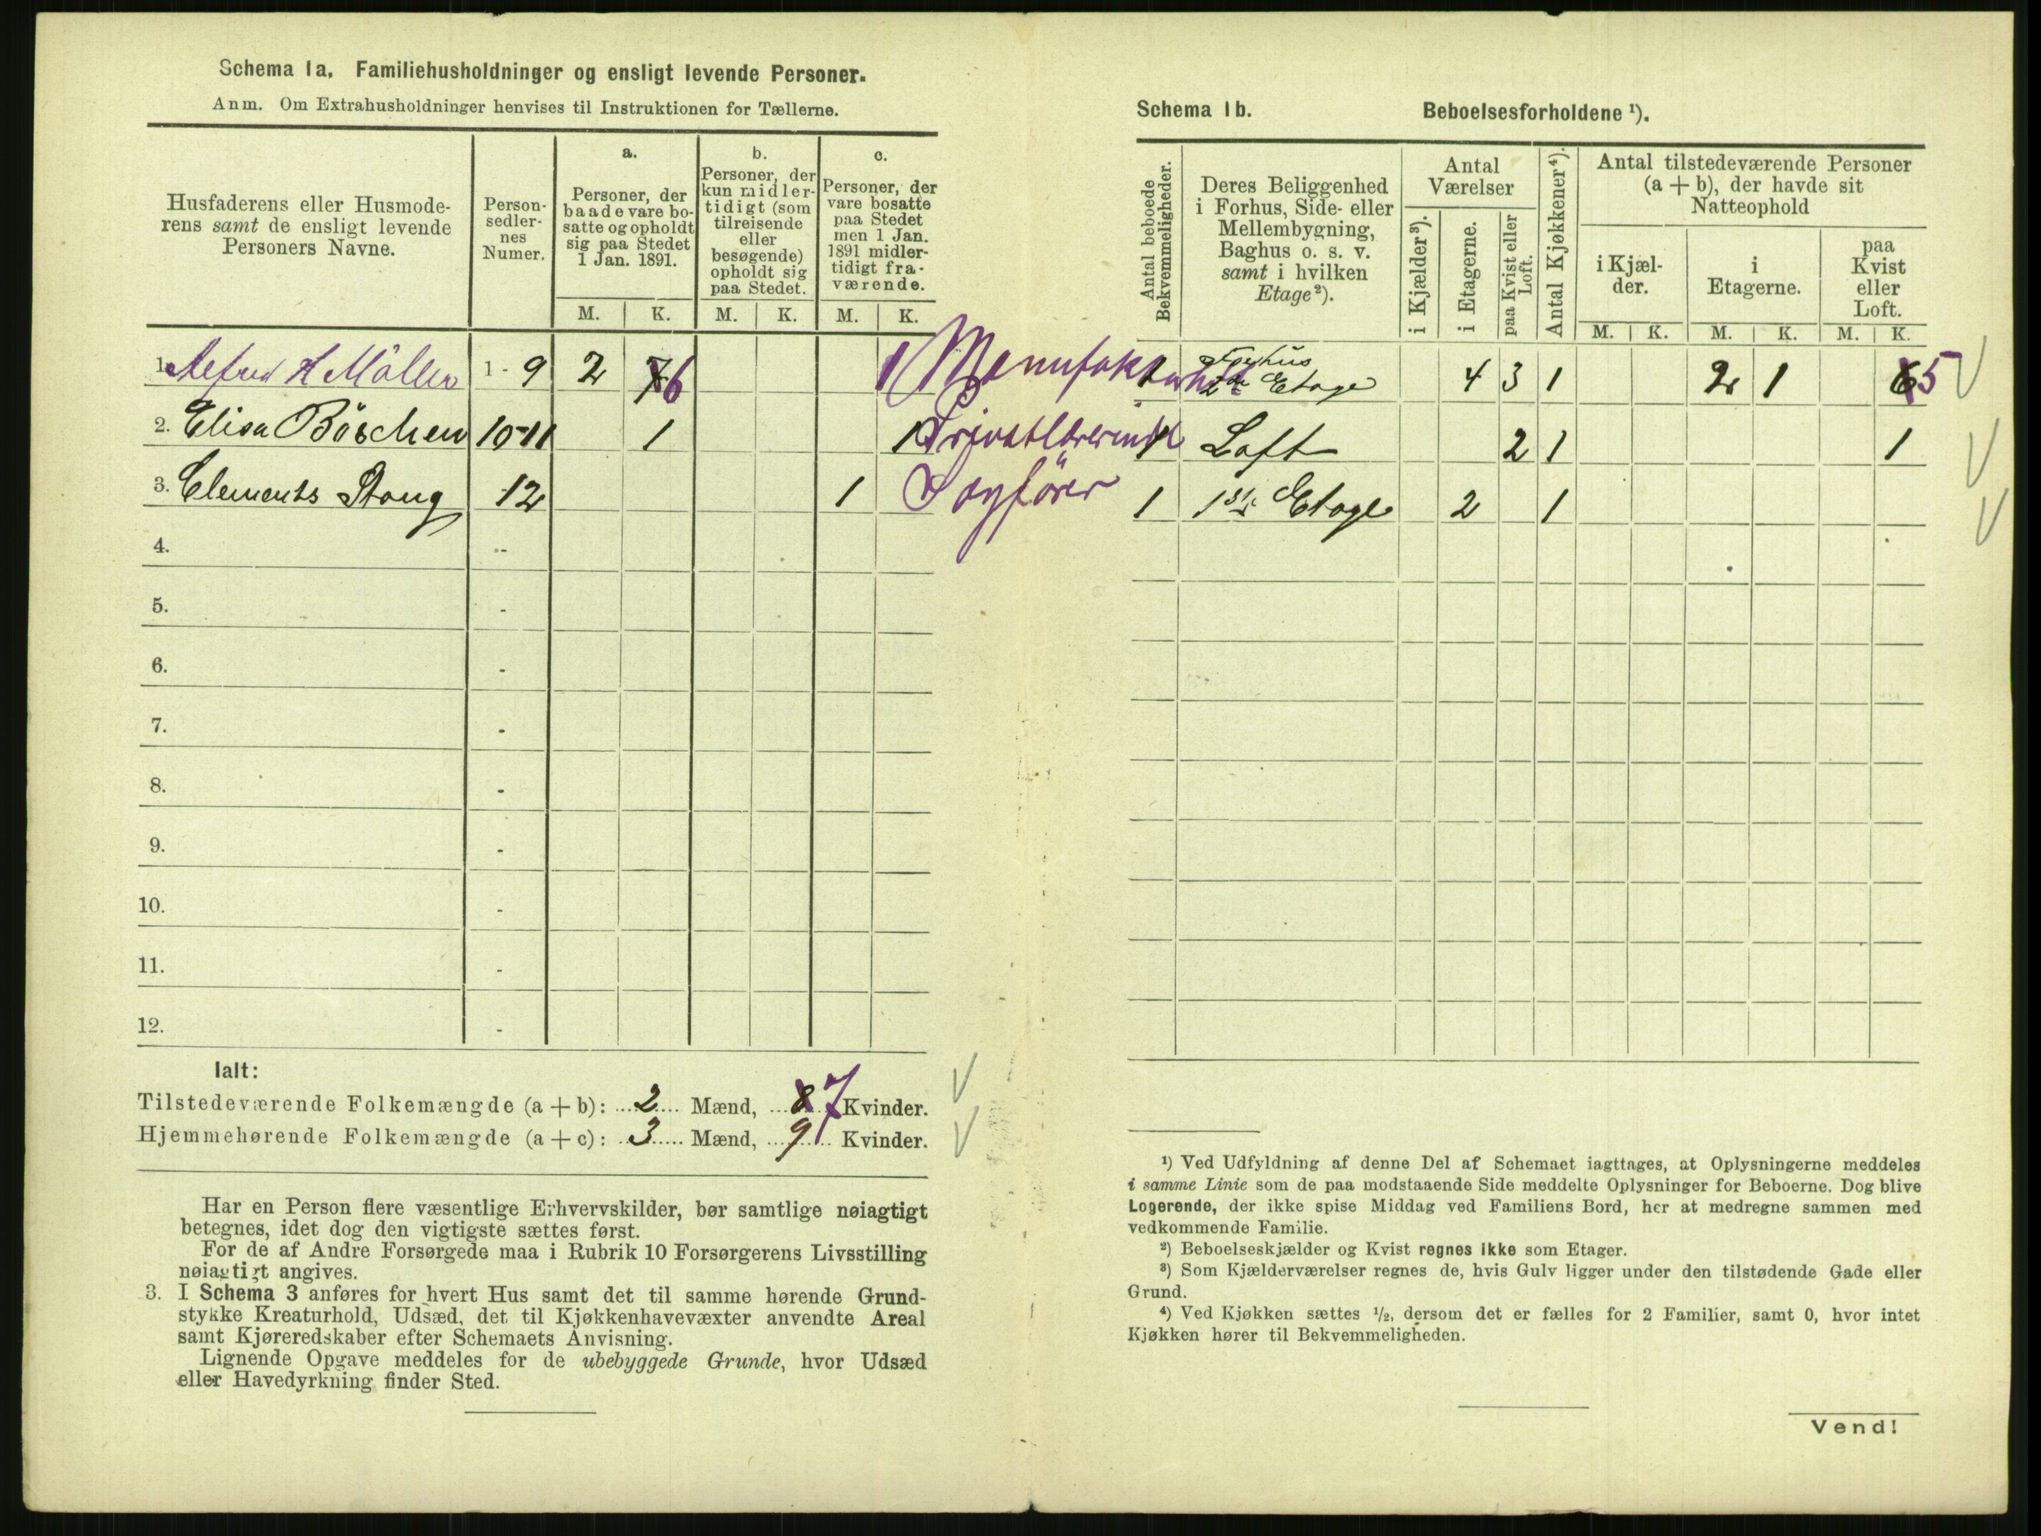 Schema 1a. Familiehusholdninger og ensligt levende Personer.
Anm. Om Extrahusholdninger henvises til Instruktionen for Tællerne.
Husfaderens eller Husmoderens samt de ensligt levende Personers Navne.
Personsedlernes Numer.
a. Personer, der baade vare bosatte og opholdt sig paa Stedet 1 Jan. 1891.
b. Personer, der kun midlertidigt (som tilreisende eller besøgende) opholdt sig paa Stedet.
c. Personer, der vare bosatte paa Stedet men 1 Jan. 1891 midlertidigt fraværende.
M. K. M. K. M. K.
1. H Möller 1 - 9 2 7 6 1
2. Elisa Böschen 10-11 1 1 Privatlærerinde
3. Clements Stang 12 1 Sagfører
4. -
5. -
6. -
7. -
8. -
9. -
10. -
11. -
12. -
Ialt:
Tilstedeværende Folkemængde (a + b): 2 Mænd, 8 7 Kvinder.
Hjemmehørende Folkemængde (a + c): 3 Mænd, 9 Kvinder.
Har en Person flere væsentlige Erhvervskilder, bør samtlige nøiagtigt
betegnes, idet dog den vigtigste sættes først.
For de af Andre Forsørgede maa i Rubrik 10 Forsørgerens Livsstilling
nøiagtigt angives.
3. I Schema 3 anføres for hvert Hus samt det til samme hørende Grund-
stykke Kreaturhold, Udsæd, det til Kjøkkenhavevæxter anvendte Areal
samt Kjøreredskaber efter Schemaets Anvisning.
Lignende Opgave meddeles for de ubebyggede Grunde, hvor Udsæd
eller Havedyrkning finder Sted.
Schema 1b. Beboelsesforholdene ¹).
Antal beboede Bekvemmeligheder.
Deres Beliggenhed i Forhus, Side- eller Mellembygning, Baghus o. s. v. samt i hvilken Etage²).
Antal Værelser
i Kjælder³).
i Etagerne.
paa Kvist eller Loft.
Antal Kjøkkener⁴).
Antal tilstedeværende Personer (a + b), der havde sit Natteophold
i Kjælder.
i Etagerne.
paa Kvist eller Loft.
M. K. M. K. M. K.
Forhus
2den Etage 4 3 1 2 1 6 5
1 Loft 2 1 1
1 1ste Etage 2 1
¹) Ved Udfyldning af denne Del af Schemaet iagttages, at Oplysningerne meddeles
i samme Linie som de paa modstaaende Side meddelte Oplysninger for Beboerne. Dog blive
Logerende, der ikke spise Middag ved Familiens Bord, her at medregne sammen med
vedkommende Familie.
²) Beboelseskjælder og Kvist regnes ikke som Etager.
³) Som Kjælderværelser regnes de, hvis Gulv ligger under den tilstødende Gade eller
Grund.
⁴) Ved Kjøkken sættes ½, dersom det er fælles for 2 Familier, samt 0, hvor intet
Kjøkken hører til Bekvemmeligheden.
Vend!